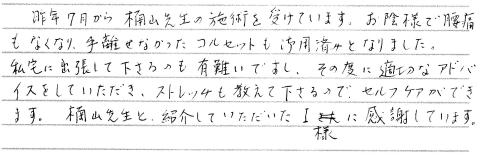 昨年7月から楠山先生の施術を受けています。お陰様で腰痛
もなくなり、手離せなかったコルセットも御用済みとなりました。
私宅に出張して下さるのも有難いですし、その度に適切なアドバ
イスをしていただき、ストレッチも教えて下さるので、セルフケアができ
ます。楠山先生と、紹介していただいたI様に感謝しています。